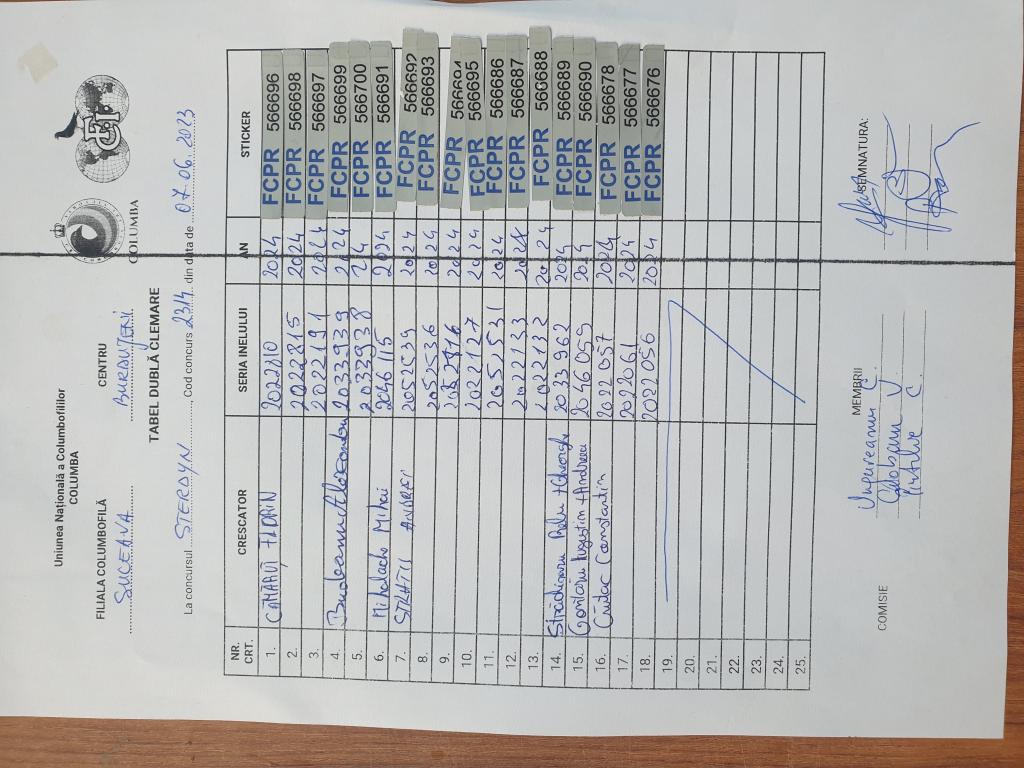 Uniunea Națională a Columbofililor
COLUMBA
COLUMBA
FCI
FILIALA COLUMBOFILĂ CENTRU
SUCEAVA BURDUJENI
TABEL DUBLĂ CLEMARE
La concursul STERDYN, Cod concurs 2314 din data de 07.06.2023
NR. CRT. CRESCATOR SERIA INELULUI AN STICKER
1. CĂMĂRUȚ FLORIN 2022210 2024 FCPR 566696
2. 2022815 2024 FCPR 566698
3. 2022191 2024 FCPR 566697
4. Budeanu Alexandru 2033939 2024 FCPR 566699
5. 2033938 24 FCPR 566700
6. Mihalache Mihai 2046115 2024 FCPR 566691
7. STRATII ANDREI 2052539 2024 FCPR 566692
8. 2052536 2024 FCPR 566693
9. 2024 FCPR 566694
10. 2022127 2024 FCPR 566695
11. 2052531 2024 FCPR 566686
12. 2022133 2024 FCPR 566687
13. 2022132 2024 FCPR 566688
14. Străchinaru Radu + Gheorghe 2033962 2024 FCPR 566689
15. Contariu Augustin + Andreea 2046059 2024 FCPR 566690
16. Ciutac Constantin 2022057 2024 FCPR 566678
17. 2022061 2024 FCPR 566677
18. 2022056 2024 FCPR 566676
19.
20.
21.
22.
23.
24.
25.
COMISIE MEMBRII SEMNATURA:
Ungureanu C.
V.
C.